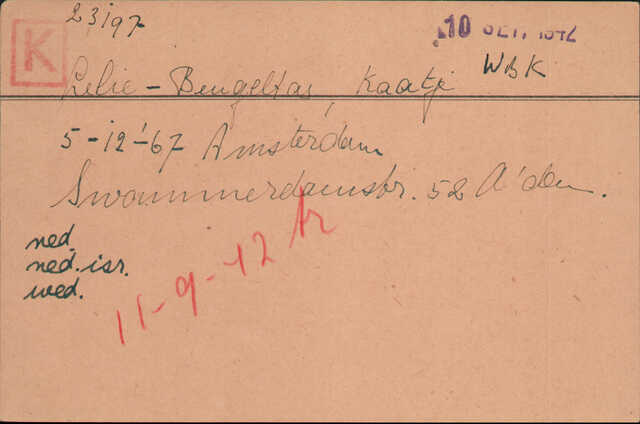 23197
10 SEP. 1942
K
WBK
Lelie - Beugeltas, Kaatje
5-12-'67 Amsterdam
Swammerdamstr. 52 A'dam.
ned.
ned. isr.
wed.
11-9-42 tr